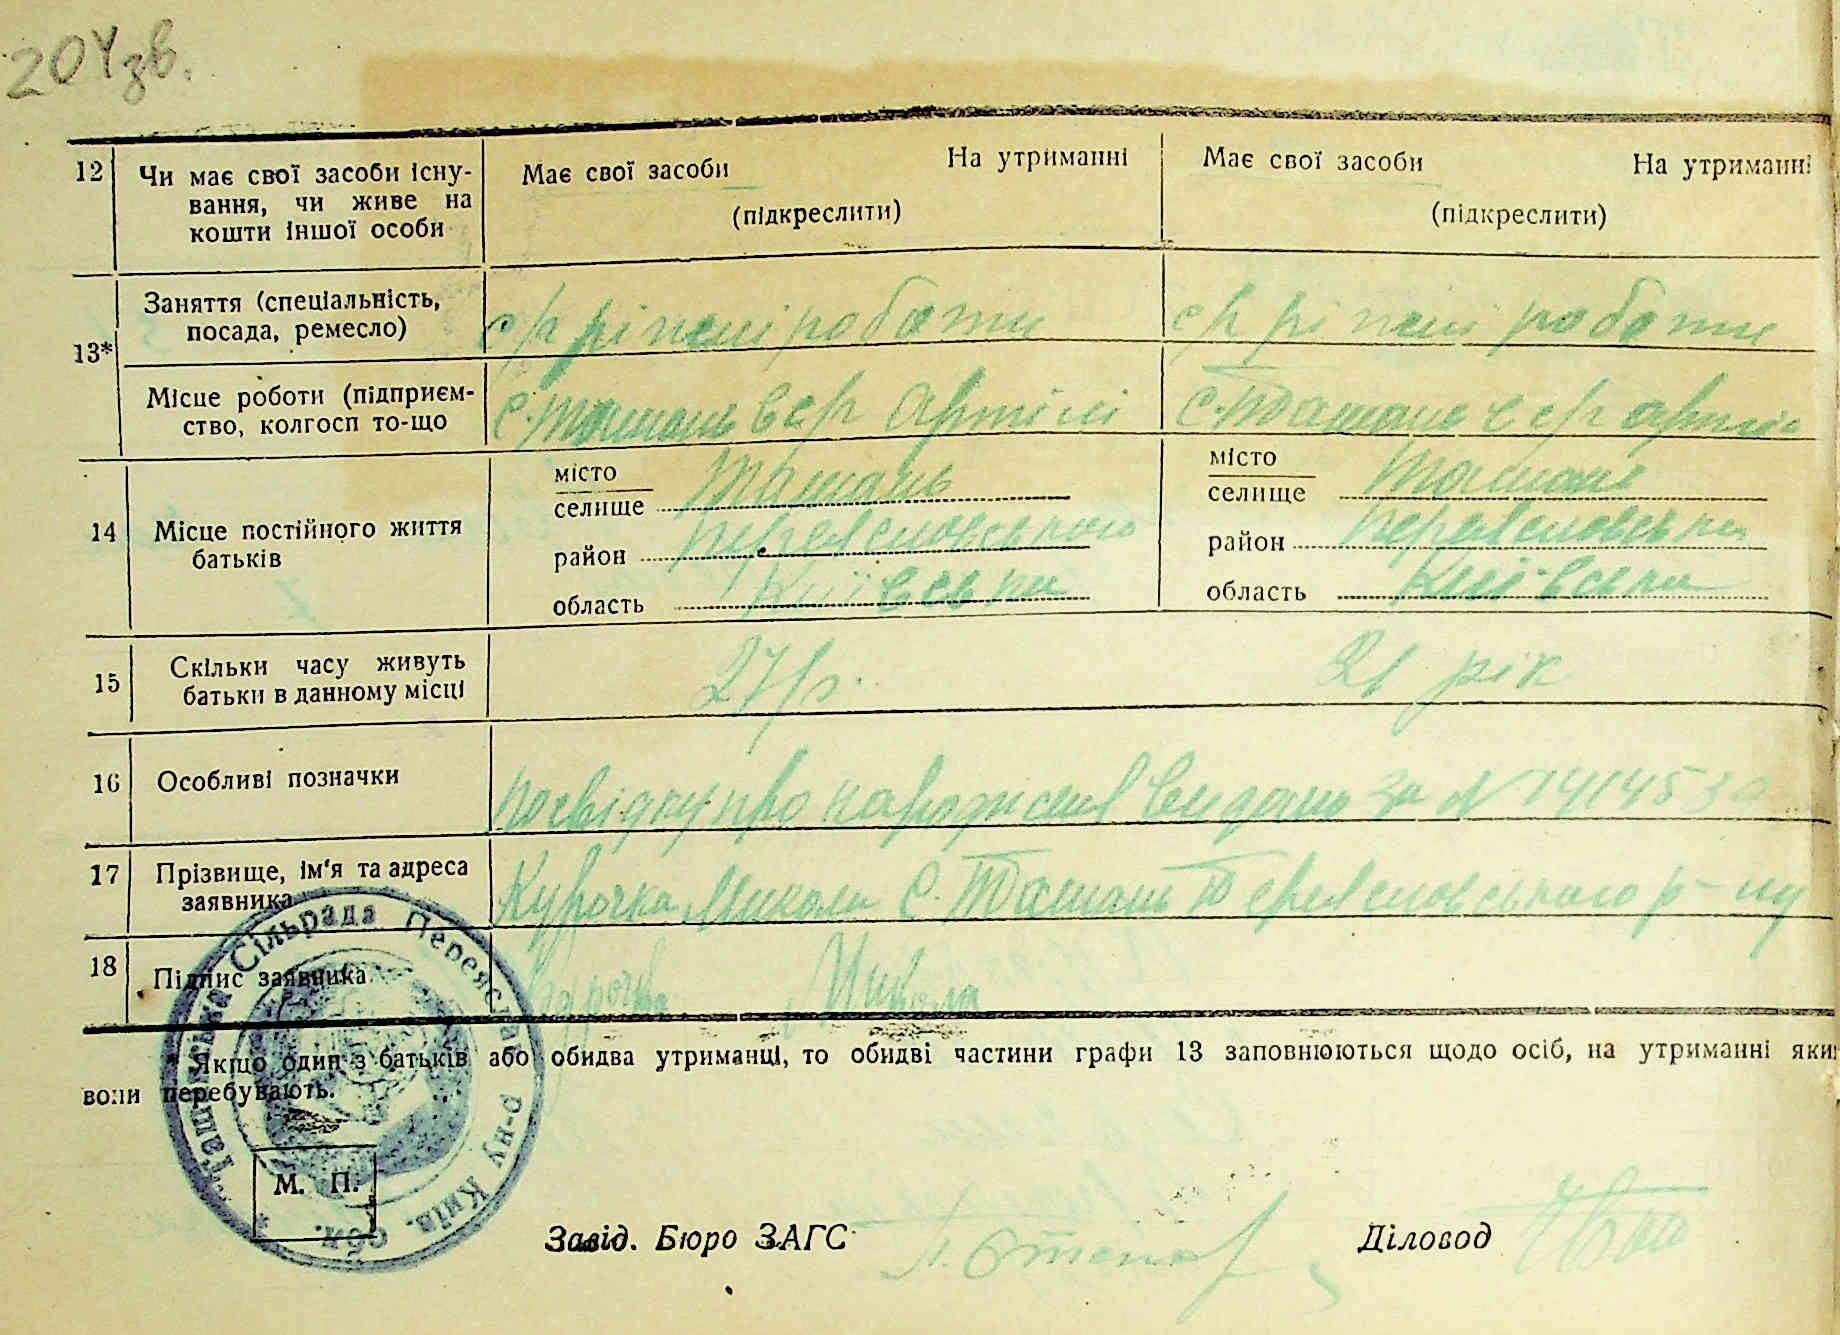 204зв.
12 Чи має свої засоби існу-
вання, чи живе на
кошти іншої особи
Має свої засоби На утриманні
(підкреслити)
Має свої засоби На утриманні
(підкреслити)
13*
Заняття (спеціальність,
посада, ремесло)
с/г ріпслі роботи
с/г ріпслі роботи
Місце роботи (підприєм-
ство, колгосп то-що
с. Ташань в с/г артілі
с. Ташань в с/г артілі
14 Місце постійного життя
батьків
місто
селище Ташань
район Переяславського
область Київська
місто
селище Ташань
район Переяславськи
область Київська
15 Скільки часу живуть
батьки в данному місці
27 р.
21 рік
16 Особливі позначки
посвідку про народження видано за № 1414530
17 Прізвище, ім'я та адреса
заявника
Курочка Микола с. Ташань Переяславського р-ну
18 Підпис заявника
Курочка Микола
* Якщо один з батьків або обидва утриманці, то обидві частини графи 13 заповнюються щодо осіб, на утриманні яки
вони перебувають.
Ташанська Сільрада Переяслав. р-ну Київ. обл. *
М. П.
Завід. Бюро ЗАГС
Діловод